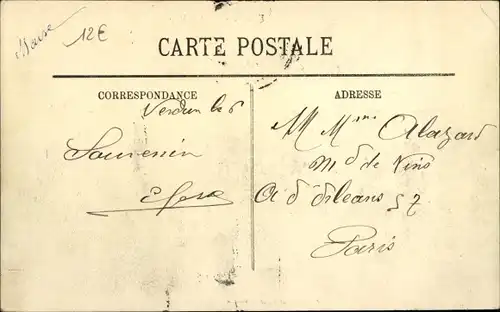 Meuse
12€
CARTE POSTALE
CORRESPONDANCE
Verdun le 6
Souvenir
ADRESSE
M Mme Alazard
Md de Vins
d'Orléans 57
Paris